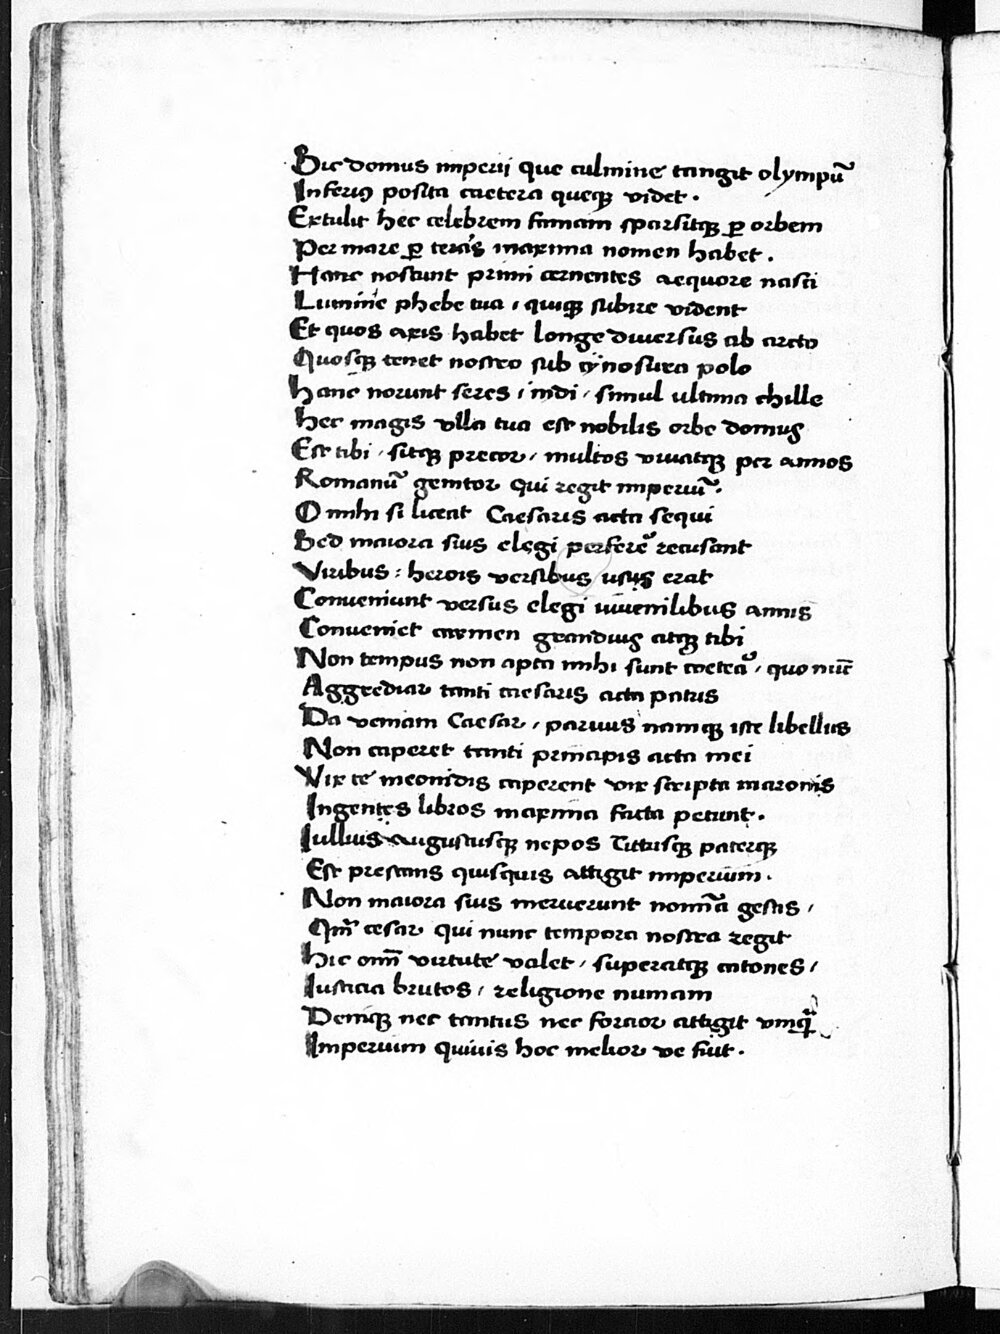 Sic domus imperii que culmine tangit olympū
Inferiꝰ posita caetera queqꝫ videt.
Extulit hec celebrem famam sparsitqꝫ ꝑ orbem
Per mare ꝑ terras maxima nomen habet.
Hanc noscunt primi cernentes aequore nasci
Lumine phebe tua, quiqꝫ subire vident
Et quos axis habet longe diuersus ab arcto
Quosqꝫ tenet nostro sub cynosura polo
Hanc norunt seres, indi, simul ultima thille
Hec magis vlla tua est nobilis orbe domus
Est tibi, sitqꝫ precor, multos viuatqꝫ per annos
Romanū genitor qui regit imperiū.
O mihi si liceat Caesaris acta sequi
Sed maiora suis elegi perferre recusant
Viribus: herois versibus usus erat
Conueniunt versus elegi iuuenilibus annis
Conueniet carmen grandius atqꝫ tibi
Non tempus non apta mihi sunt coetera, quo nūc
Aggrediar tanti caesaris acta prius
Da veniam Caesar, paruus namqꝫ iste libellus
Non caperet tanti principis acta mei
Vix te meonidis caperent vix scripta maronis
Ingentes libros maxima facta petunt.
Iullius augustusqꝫ nepos Tittusqꝫ paterqꝫ
Est prestans quisquis attigit imperium.
Non maiora suis meruerunt nomīa gestis,
Qm̄ cesar qui nunc tempora nostra regit
Hic om̄i virtute valet, superatqꝫ catones,
Iusticia brutos, religione numam
Deniqꝫ nec tantus nec forcior attigit vmqꝫ̄
Imperium quiuis hoc melior ve fuit.